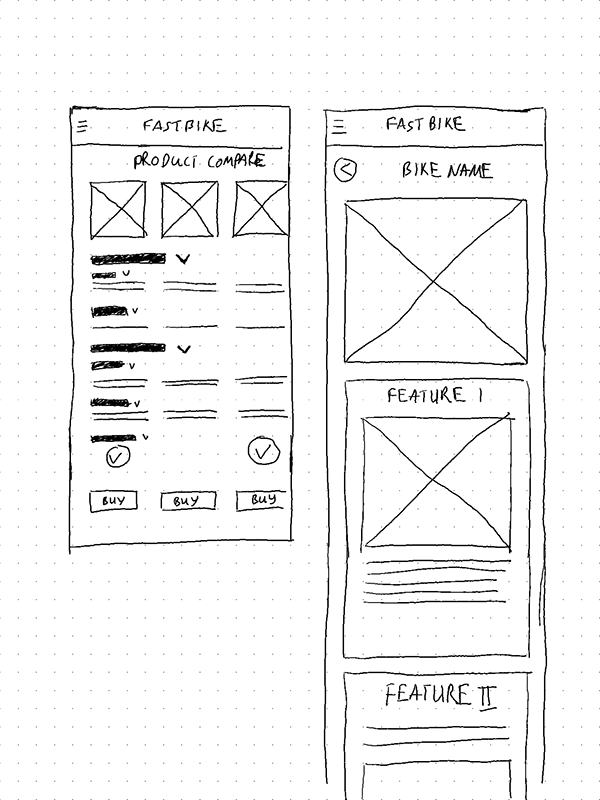 FASTBIKE
PRODUCT COMPARE
BUY BUY BUY
FASTBIKE
BIKE NAME
FEATURE I
FEATURE II